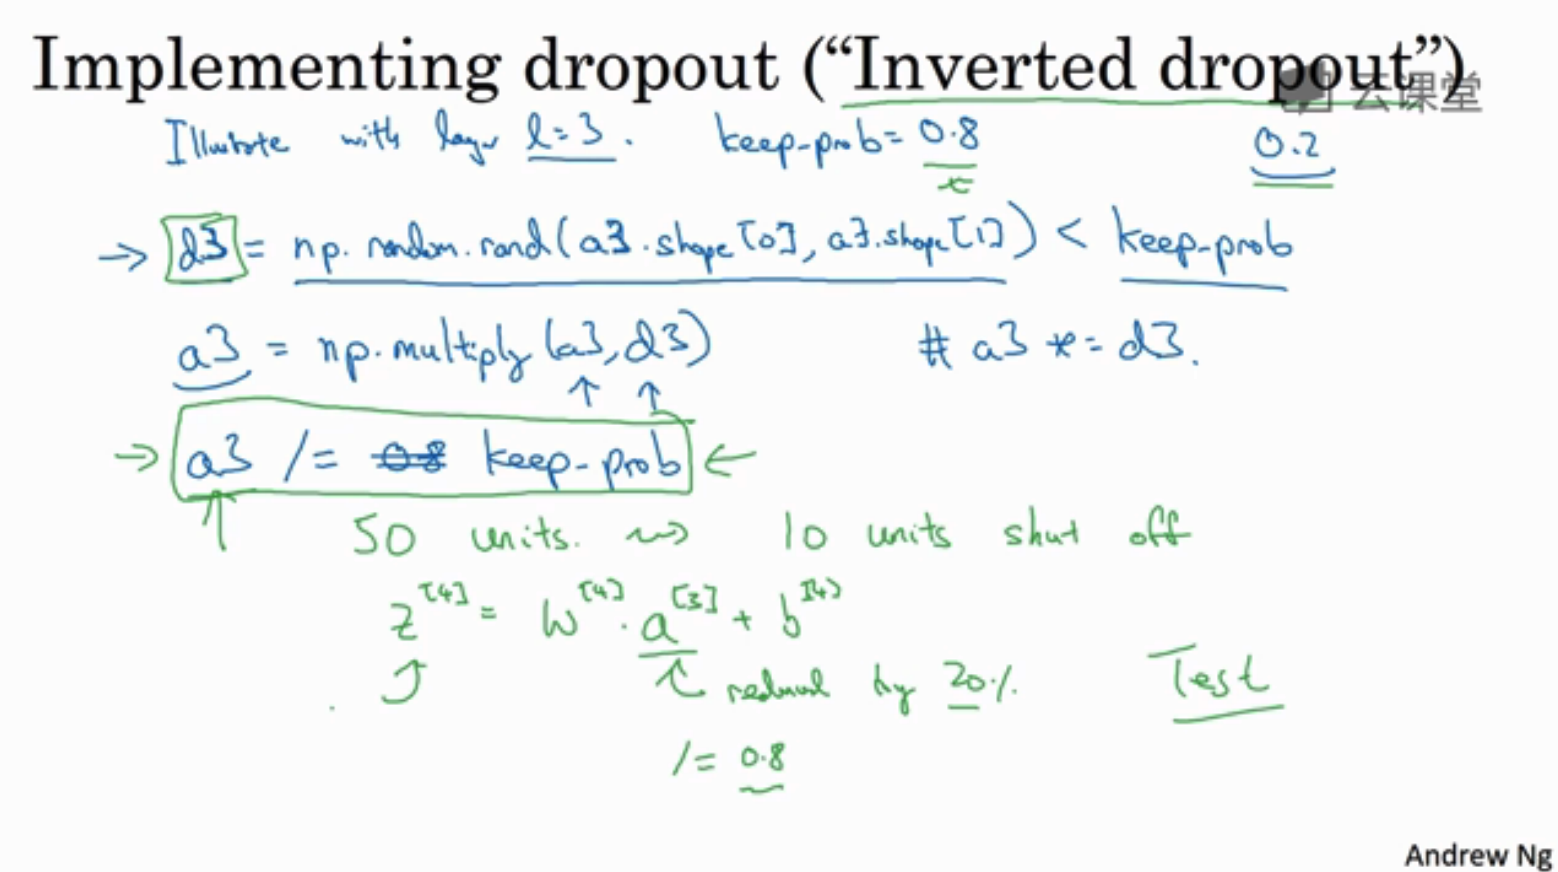 Implementing dropout (“Inverted dropout”)
云课堂
Illustrate with layer l=3. keep-prob= 0.8 0.2
→ d3 = np.random.rand(a3.shape[0], a3.shape[1]) < keep-prob
a3 = np.multiply(a3, d3) # a3 *= d3.
↑ ↑
→ a3 /= 0.8 keep-prob ←
↑ 50 units. ⇝ 10 units shut off
z[4] = W[4] · a[3] + b[4]
reduced by 20%. Test
/= 0.8
Andrew Ng